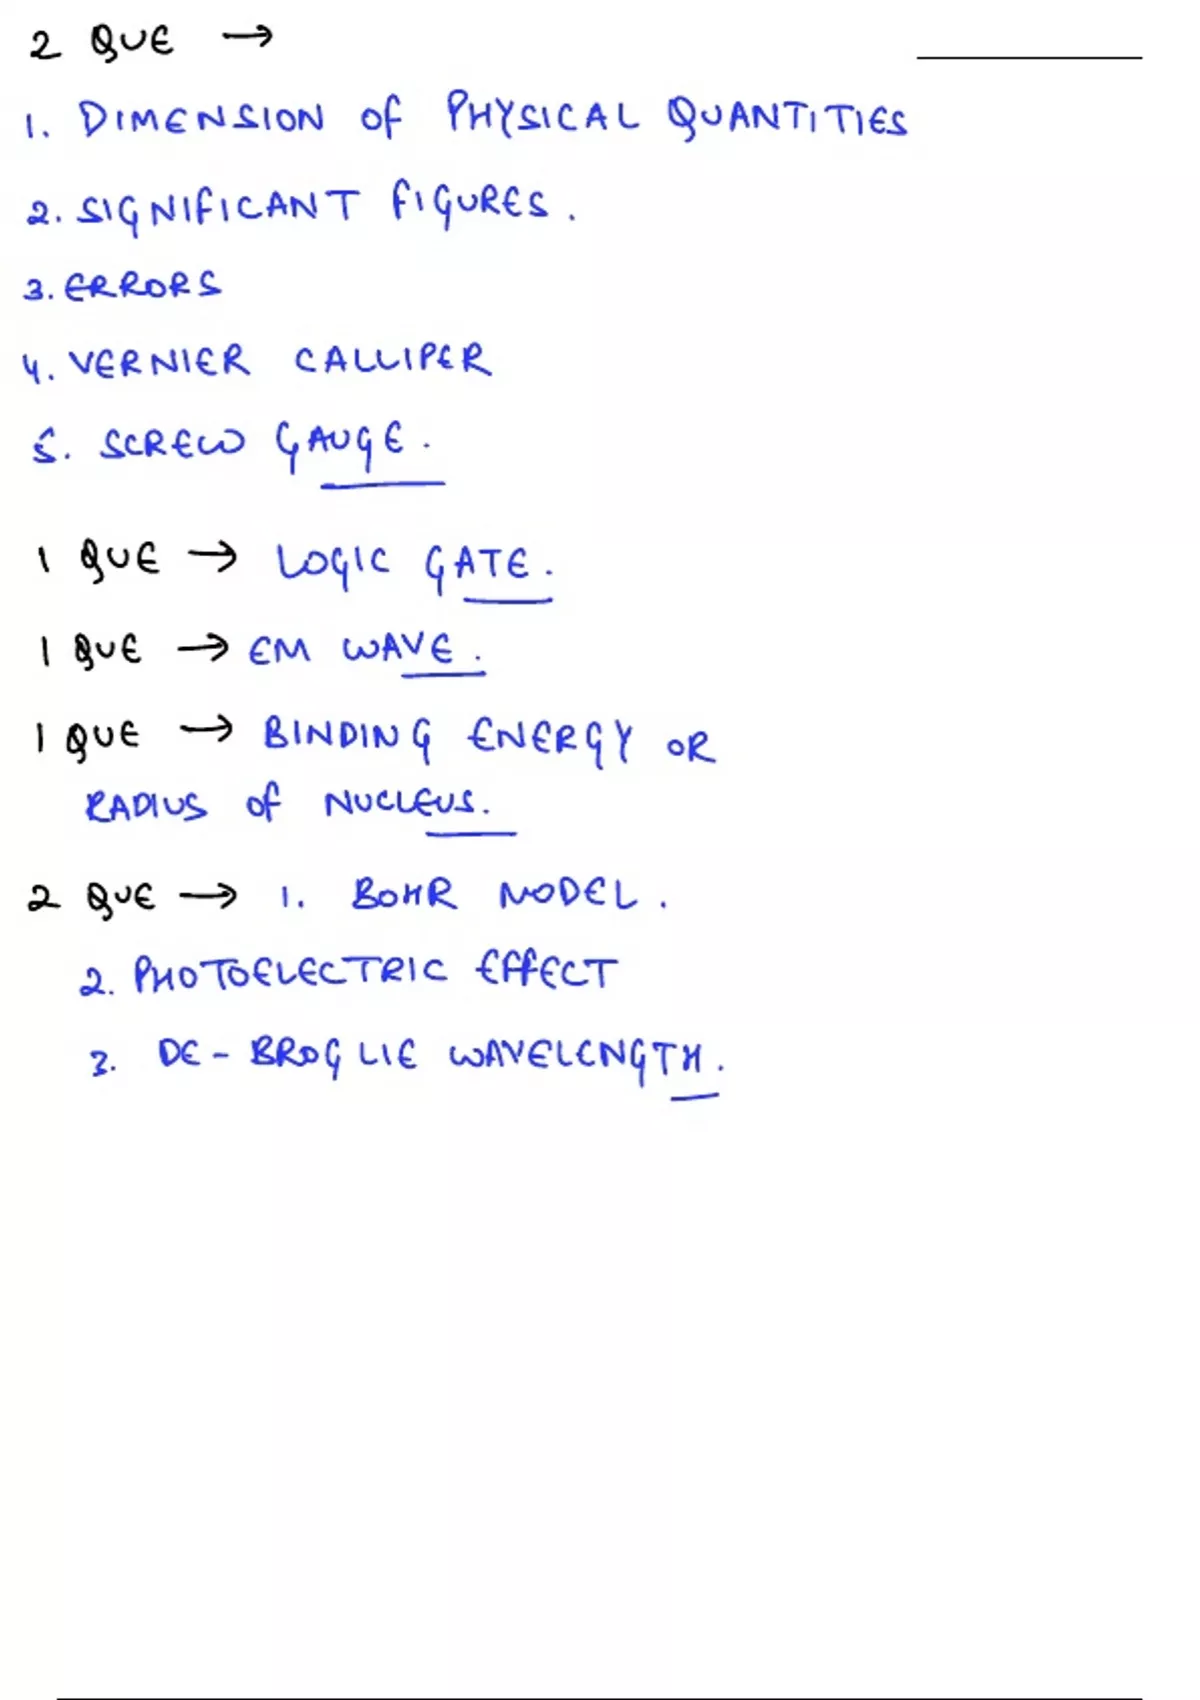 2 QUE →
1. DIMENSION OF PHYSICAL QUANTITIES
2. SIGNIFICANT FIGURES.
3. ERRORS
4. VERNIER CALLIPER
5. SCREW GAUGE.
1 QUE → LOGIC GATE.
1 QUE → EM WAVE.
1 QUE → BINDING ENERGY OR
RADIUS OF NUCLEUS.
2 QUE → 1. BOHR MODEL.
2. PHOTOELECTRIC EFFECT
3. DE-BROGLIE WAVELENGTH.